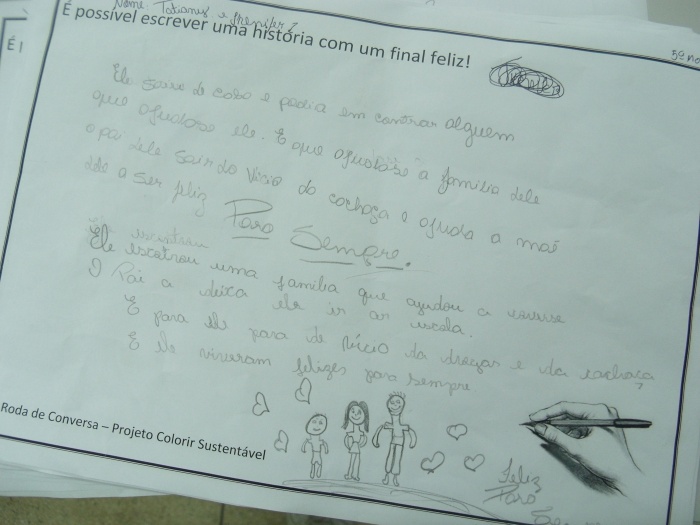 Nome Tatiany e Jhenifer
É possível escrever uma história com um final feliz!
5º no
É I
Ele saise de casa e podia em contrar alguem
que ajudase ele. E que ajudase a familia dele
o pai dele sair do Vicio da cachaça e ajuda a mai
dele a ser feliz Para Sempre.
Ele escotrou uma familia que ajudou a
O Pai a deixa ele ir an escola.
E para ele para de Viício da drogas e da cachaça
E ele viveram felizes para sempre.
Roda de Conversa – Projeto Colorir Sustentável
Feliz
Para